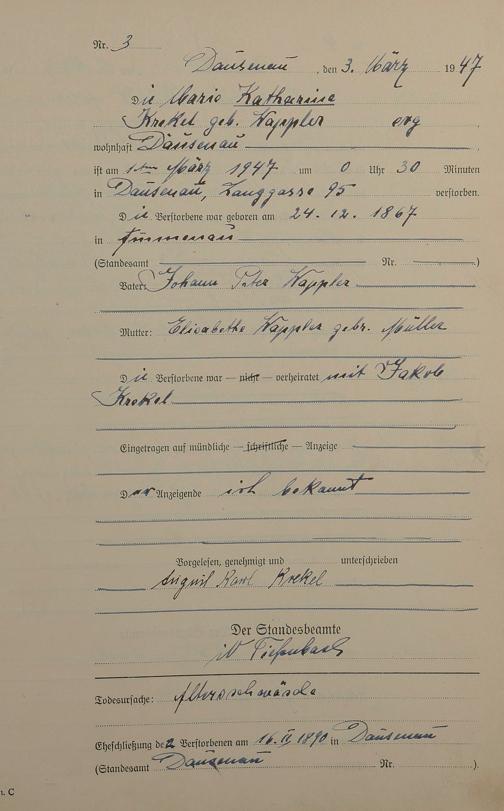 Nr. 3
Dausenau, den 3. März 1947
Die Marie Katharine
Krekel geb. Kappler evg
wohnhaft Dausenau
ist am 1ten März 1947 um 0 Uhr 30 Minuten
in Dausenau, Langgasse 95 verstorben.
Die Verstorbene war geboren am 24.12.1867
in
(Standesamt Nr. )
Vater: Johann Peter Kappler
Mutter: Elisabethe Kappler gebr. Müller
Die Verstorbene war — nicht — verheiratet mit Jakob
Krekel
Eingetragen auf mündliche — schriftliche — Anzeige
Der Anzeigende ist bekannt
Vorgelesen, genehmigt und unterschrieben
August Karl Krekel
Der Standesbeamte
iV Tiefenbach
Todesursache: Altersschwäche
Eheschließung der Verstorbenen am 16.II 1890 in Dausenau
(Standesamt Dausenau Nr. ).
C